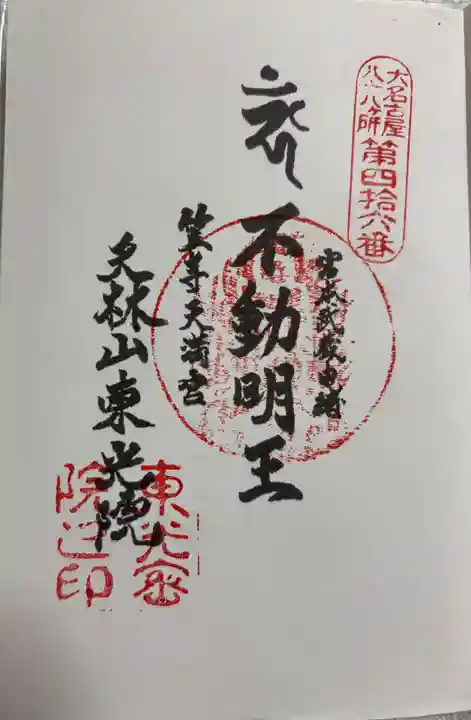 大名古屋
八十八ヶ所
第四拾六番
奉
不動明王
宮本武蔵
笠寺天満宮
天林山東光院
東光密
院之印